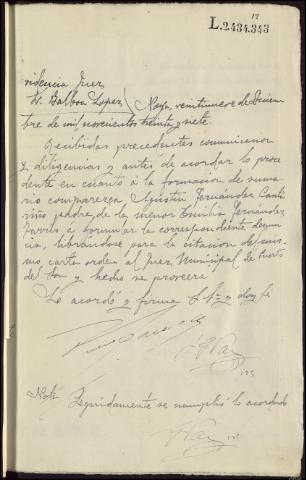 12
L.2.434.343
videncia Juez
Sr. Balboa Lopez
Noya, veintinueve de Diciem
bre de mil novecientos treinta y siete
Recibidas precedentes comunicacion
y diligencias y antes de acordar lo proce
dente en cuanto á la formacion de suma
rio comparezca Agustin Fernández
padre de la menor Emilia Fernández
á formular la correspondiente denun
cia, librándose para la citacion del mis
mo carta orden al Juez Municipal de Puerto
del Son y hecho se proveera
Lo acordó y firma S.Sª y doy fé
Nota Seguidamente se cumplió lo acordado